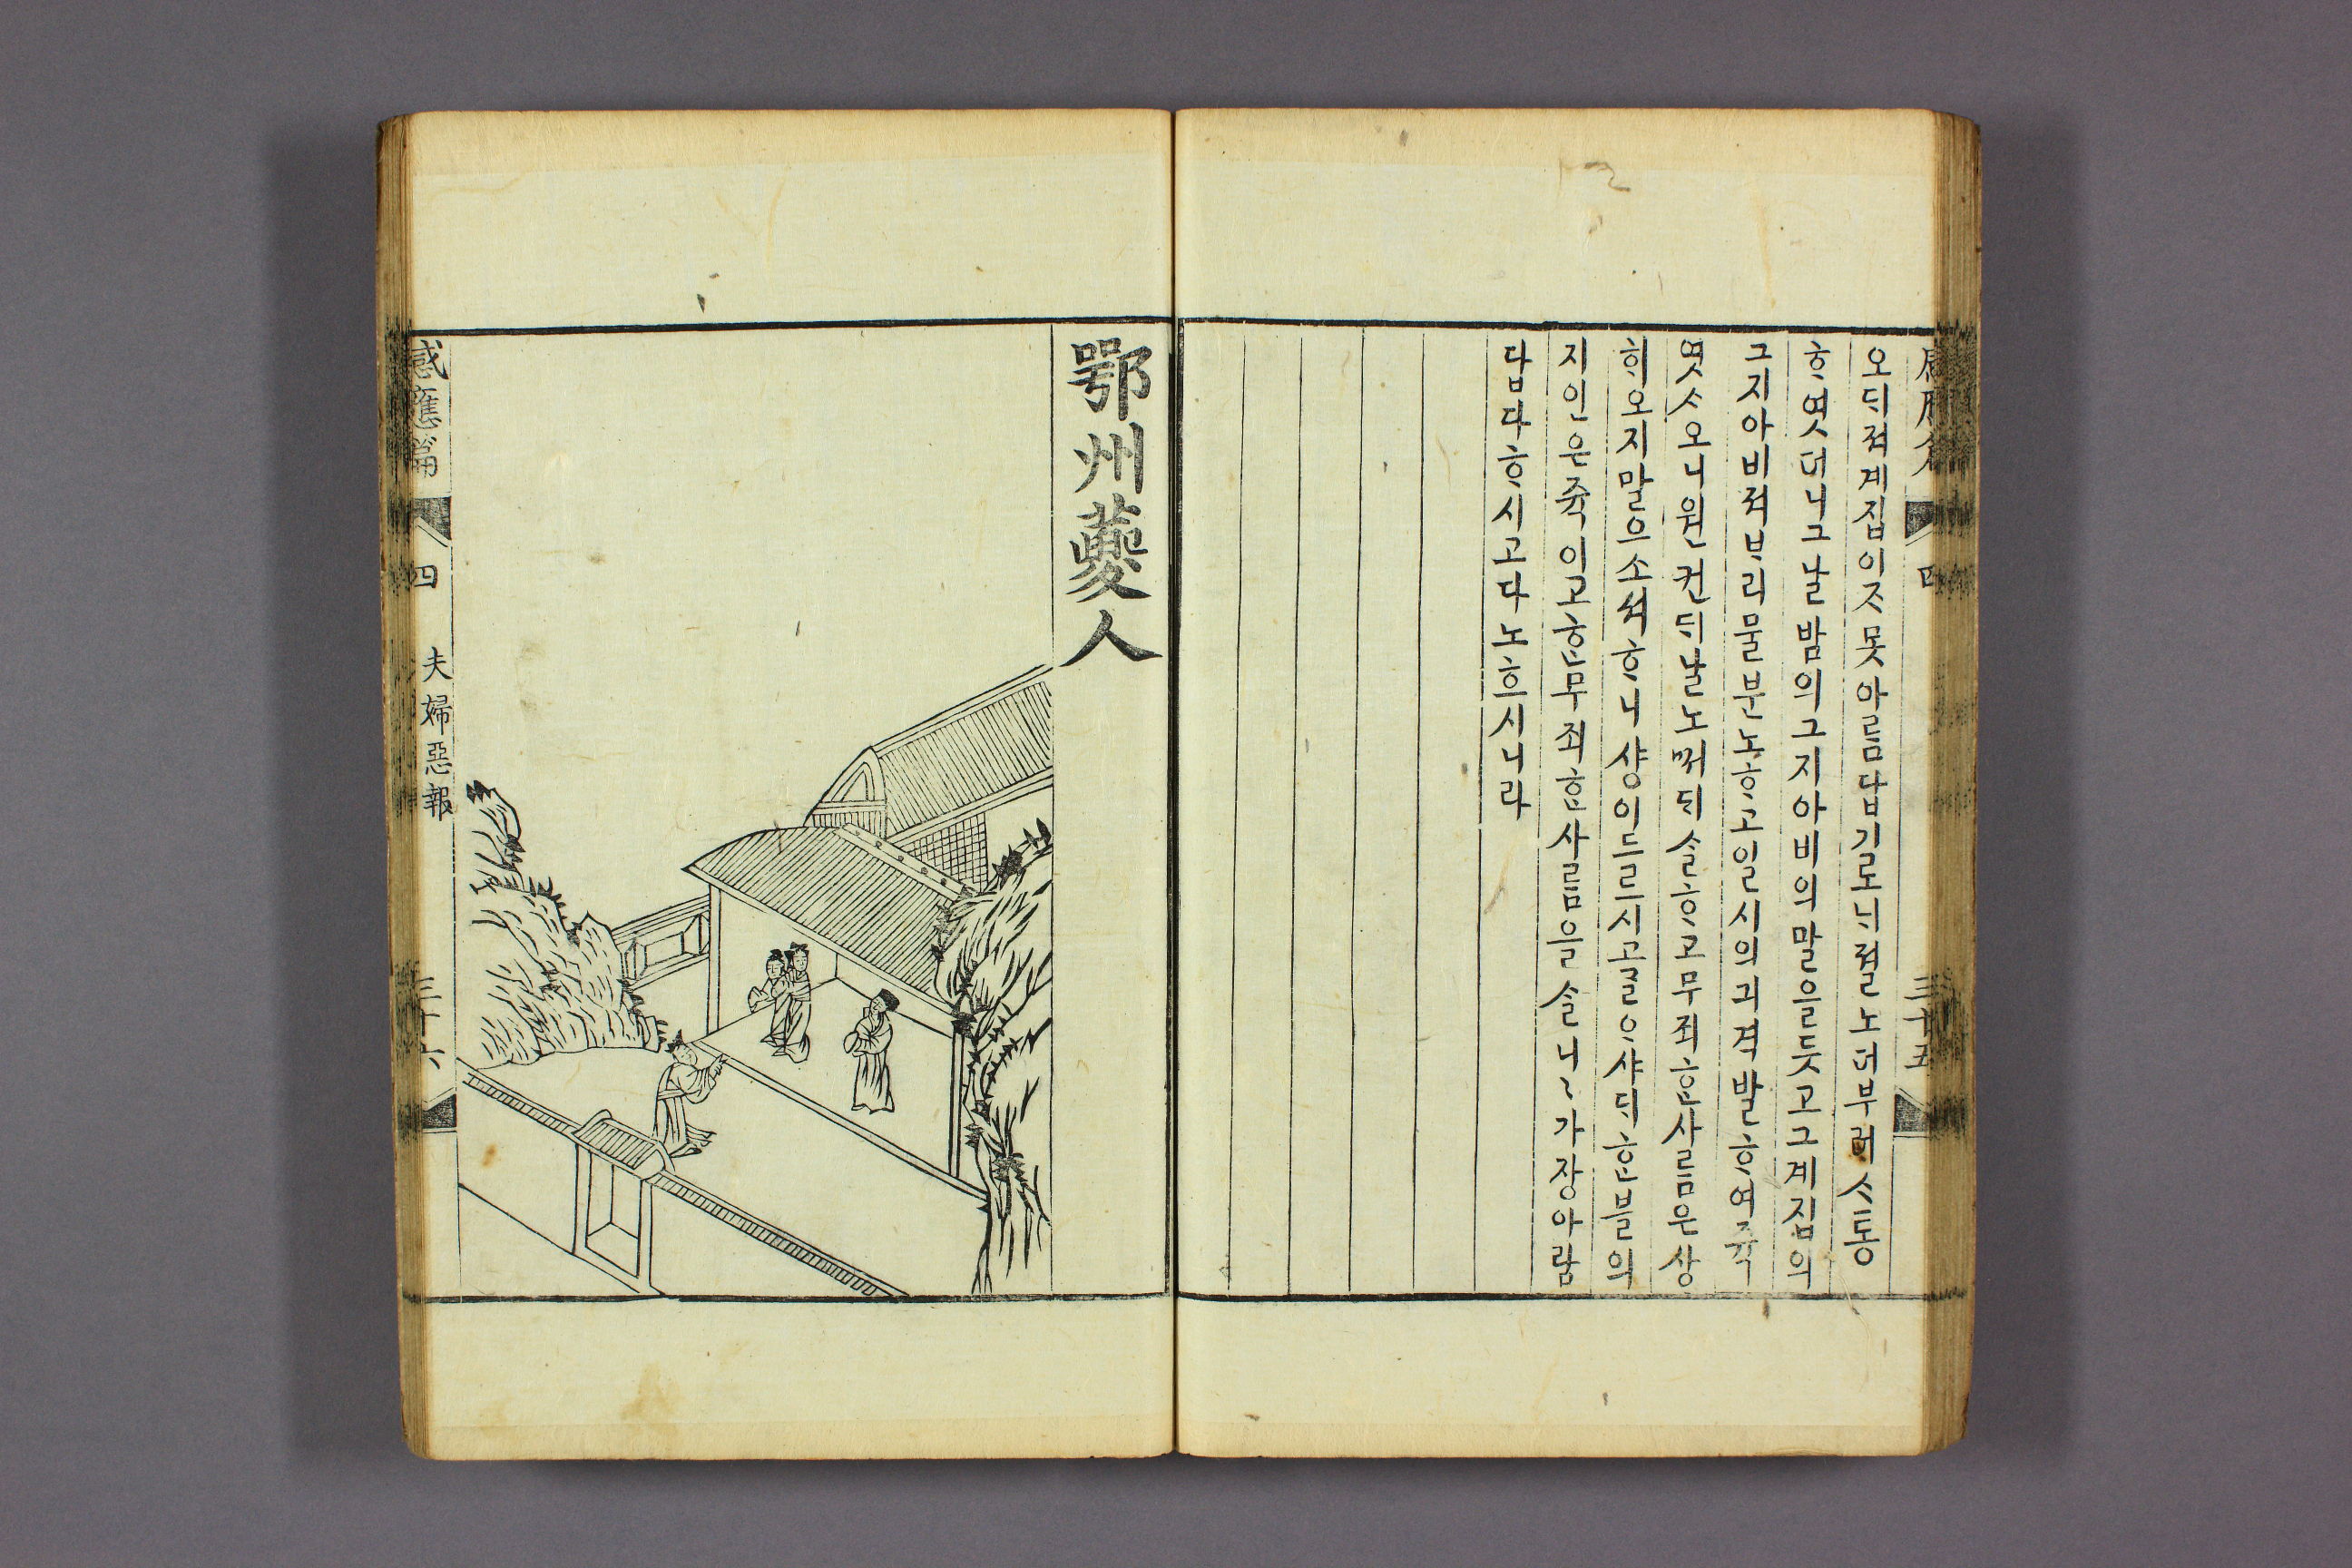 感應篇 四 三十五
오ᄃᆡ져계집이ᄌᆞ못아름답기로ᄂᆡ졀노더부러ᄉᆞ동
ᄒᆞ엿더니그날밤의그지아비의말을듯고그계집의
그지아비져ᄇᆞ리물분노ᄒᆞ고일시의긔격발ᄒᆞ여쥭
엿ᄉᆞ오니원컨ᄃᆡ날노ᄢᅥᄃᆡᄉᆞᆯᄒᆞ고무죄ᄒᆞᆫ사름은상
ᄒᆡ오지말으소셔ᄒᆞ니샹이드르시고ᄀᆞᆯᄋᆞ샤ᄃᆡᄒᆞᆫ불의
지인은쥭이고ᄒᆞᆫ무죄ᄒᆞᆫ사름을ᄉᆞᆯ니〻가장아람
답다ᄒᆞ시고다노흐시니라
鄂州䕫人
感應篇 四 夫婦惡報 三十六